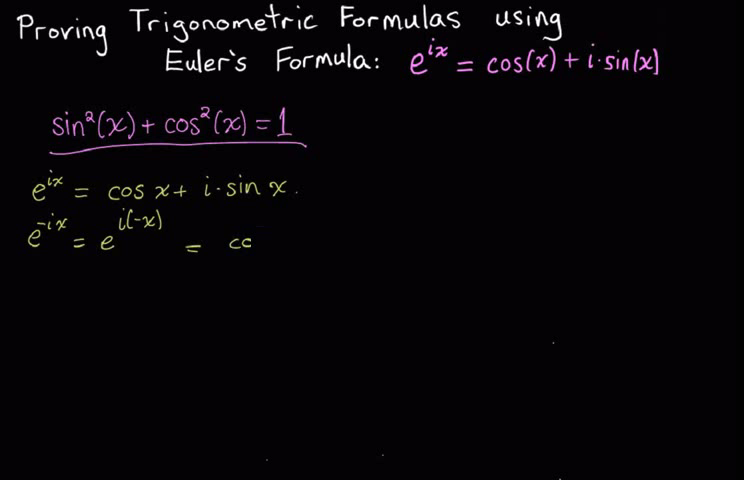 Proving Trigonometric Formulas using
Euler's Formula: e^{ix} = cos(x) + i·sin(x)
sin²(x) + cos²(x) = 1
e^{ix} = cos x + i·sin x.
e^{-ix} = e^{i(-x)} = co